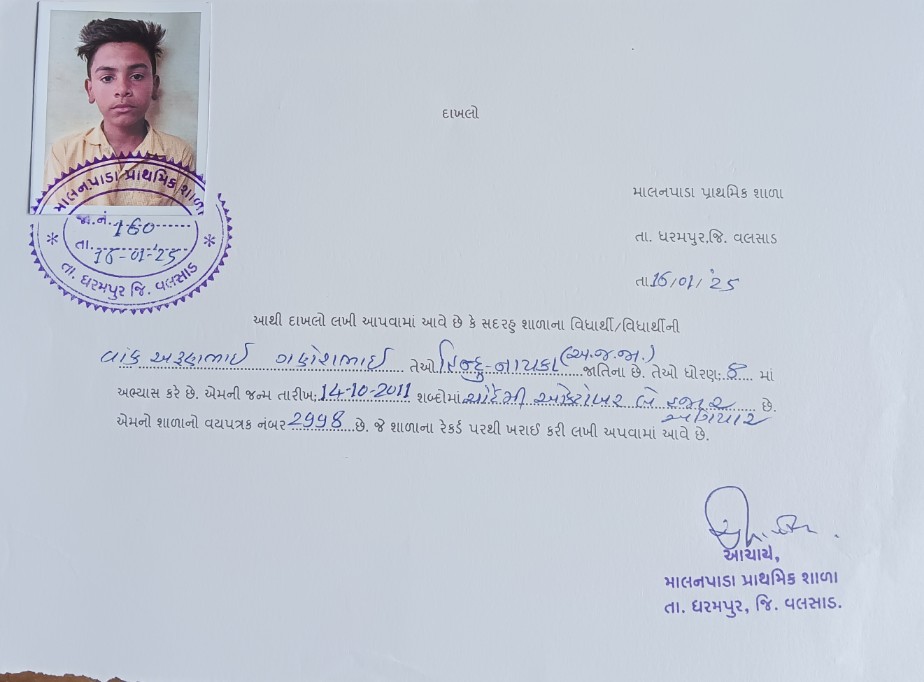 માલનપાડા પ્રાથમિક શાળા
જા.નં. 160
તા. 16-01-25
તા. ધરમપુર જિ. વલસાડ
દાખલો
માલનપાડા પ્રાથમિક શાળા
તા. ધરમપુર.જિ. વલસાડ
તા 16/01/25
આથી દાખલો લખી આપવામાં આવે છે કે સદરહુ શાળાના વિધાર્થી/વિધાર્થીની
વાંક અરૂણભાઈ ગણેશભાઈ તેઓ હિન્દુ-નાયકા (અ.જ.જા.) જાતિના છે. તેઓ ધોરણ: 8 માં
અભ્યાસ કરે છે. એમની જન્મ તારીખ: 14-10-2011 શબ્દોમાં ચૌદમી ઓક્ટોબર બે હજાર અગિયાર છે.
એમનો શાળાનો વયપત્રક નંબર 2998 છે. જે શાળાના રેકર્ડ પરથી ખરાઈ કરી લખી અપવામાં આવે છે.
આચાર્ય,
માલનપાડા પ્રાથમિક શાળા
તા. ધરમપુર, જિ. વલસાડ.